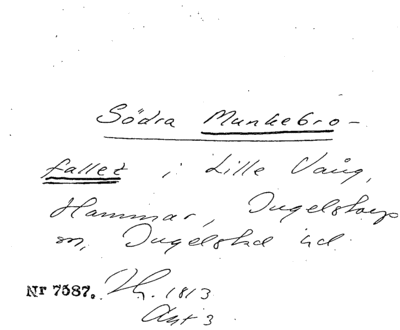 Södra Munkebro-
fallet i Lille Vång,
Hammar, Ingelstorps
sn, Ingelstad hd
Nr 7587. 1813
Akt 3